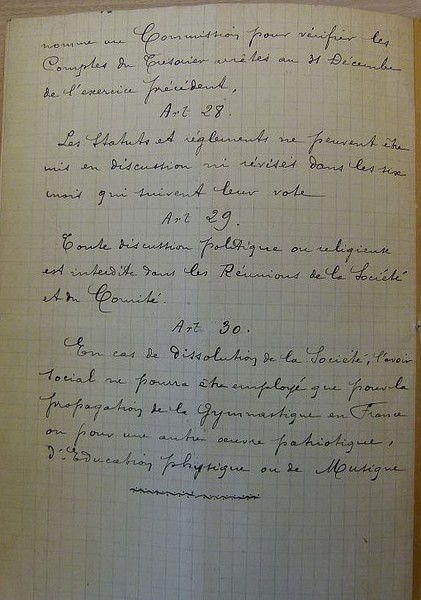 nomme une Commission pour vérifier les
Comptes du Trésorier arrêtés au 31 Décembre
de l'exercice précédent.
Art 28.
Les Statuts et règlements ne peuvent être
mis en discussion ni révisés dans les six
mois qui suivent leur vote
Art 29.
Toute discussion politique ou religieuse
est interdite dans les Réunions de la Société
et du Comité.
Art 30.
En cas de dissolution de la Société, l'avoir
social ne pourra être employé que pour la
propagation de la Gymnastique en France
ou pour une autre œuvre patriotique,
d'Education physique ou de Musique